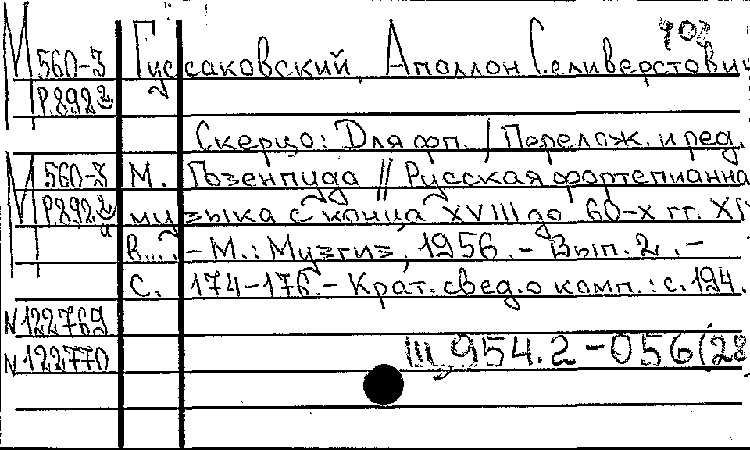 903
М 560-3 Гуссаковский, Аполлон Селиверстович
Р.892
Скерцо: Для фп. / Перелож. и ред.
М 560-3 М. Гозенпуда // Русская фортепианна
Р892 музыка с конца XVIII до 60-х гг. XI
В... - М.: Музгиз, 1956. - Вып. 2. -
С. 174-176. - Крат. свед. о комп.: с. 194.
N 122769
N 122770
Щ 954.2-056(28